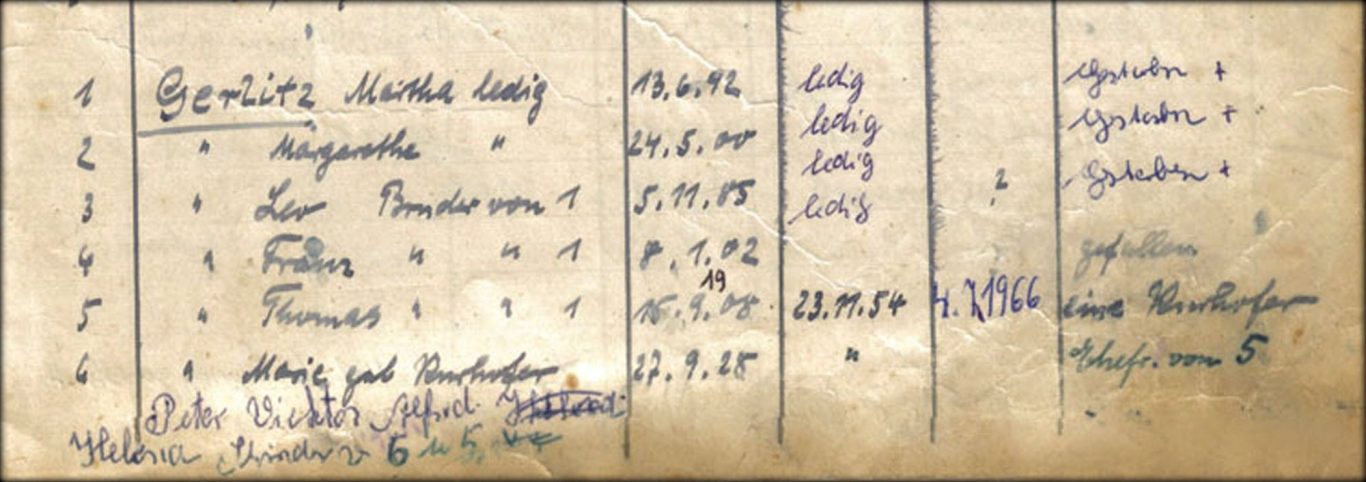 1 Gerlitz Martha ledig 13.6.92 ledig Gestorben +
2 " Margarethe " 24.5.00 ledig Gestorben +
ledig
3 " Leo Bruder von 1 5.11.85 ledig ? Gestorben +
4 " Franz " " 1 8.1.02 gefallen
19
5 " Thomas " " 1 15.9.08 23.11.54 4.7.1966 eine
6 " Marie geb 27.9.28 " Ehefr. von 5
Peter Vicktor Alfred
Helena Kinder v 6 u 5.